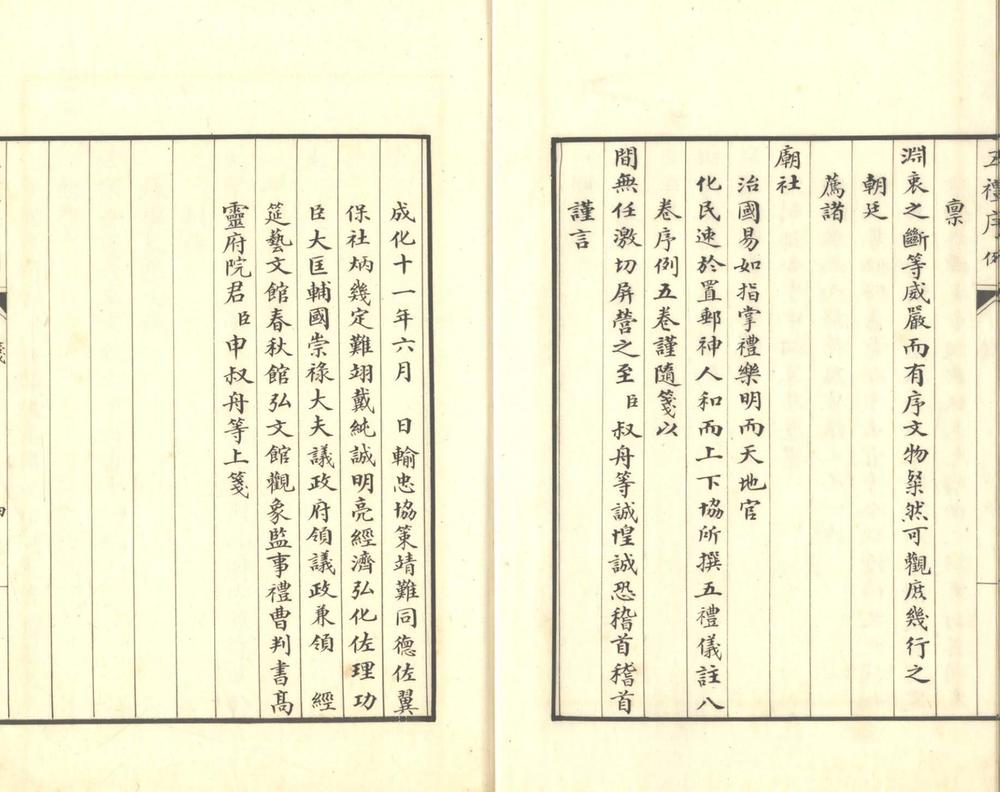 禮序例
稟
淵衷之斷等威嚴而有序文物粲然可觀庶幾行之
朝廷
薦諸
廟社
治國易如指掌禮樂明而天地官
化民速於置郵神人和而上下協所撰五禮儀註八
卷序例五卷謹隨箋以
間無任激切屏營之至臣叔舟等誠惶誠恐稽首稽首
謹言
成化十一年六月　日輸忠協策靖難同德佐翼
保社炳幾定難翊戴純誠明亮經濟弘化佐理功
臣大匡輔國崇祿大夫議政府領議政兼領　經
筵藝文館春秋館弘文館觀象監事禮曹判書高
靈府院君臣申叔舟等上箋